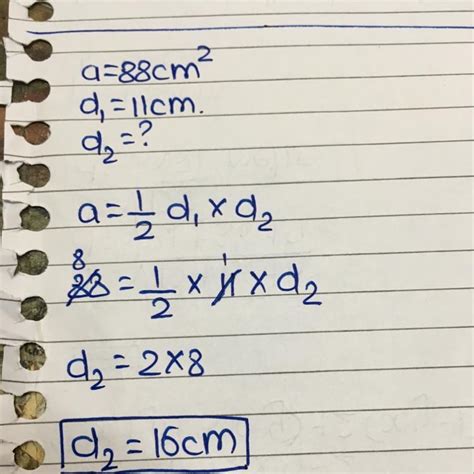 a=88cm²
d₁=11cm.
d₂=?
a=1/2 d₁×d₂
8 1
88=1/2×11×d₂
d₂=2×8
d₂=16cm